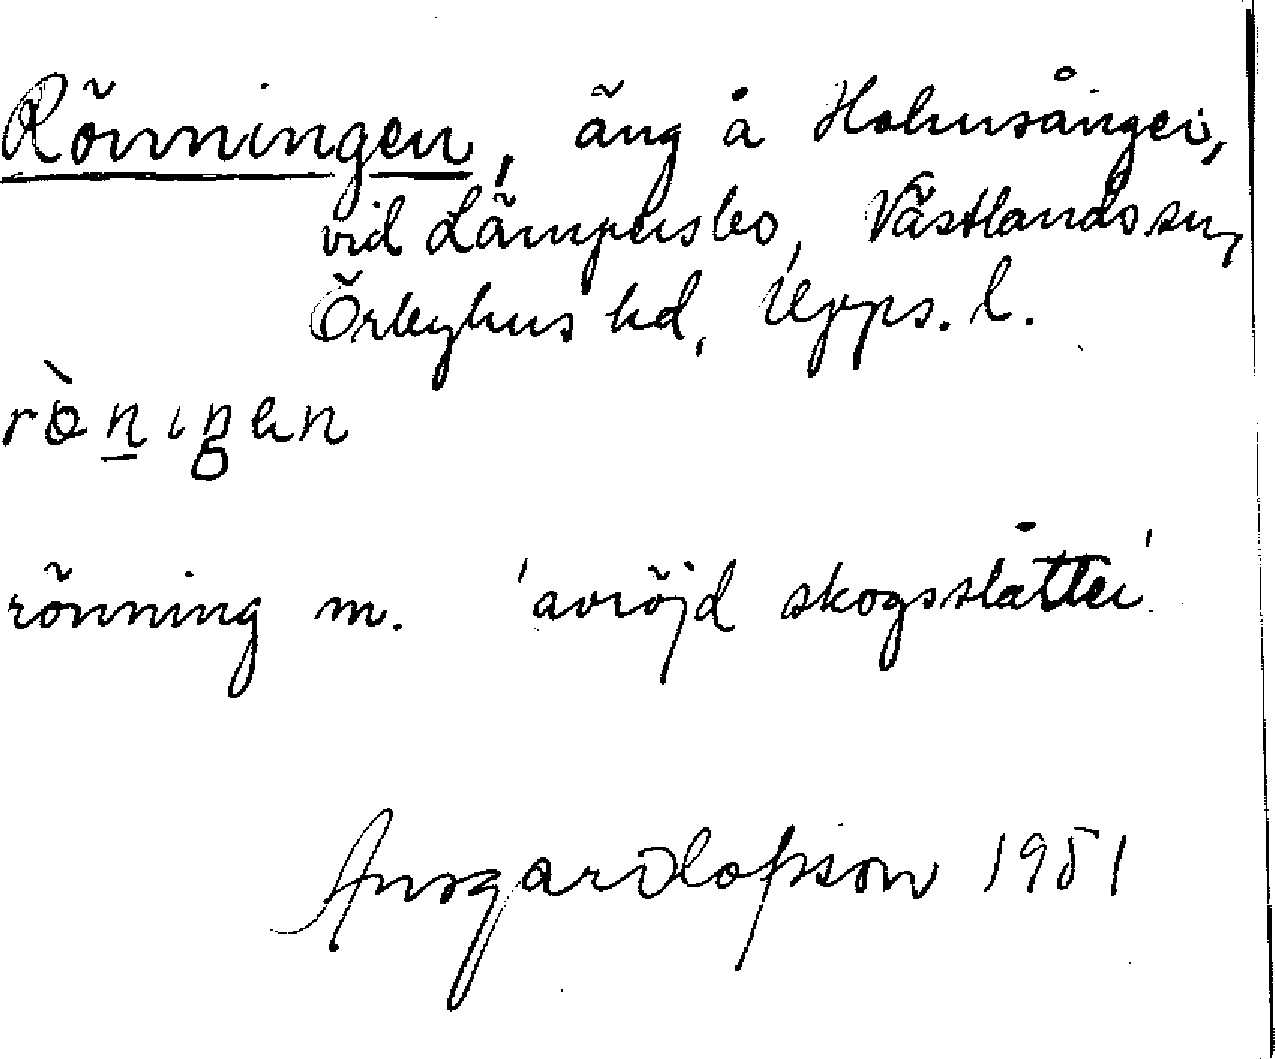 Rönningen, äng å Holmsånger,
vid Lämpersbo, Västlands sn,
Örbyhus hd, Upps. l.
rö̀n̲ɩŋen
rönning m. 'avröjd skogsslåtter'
Ansgar Olofsson 1951